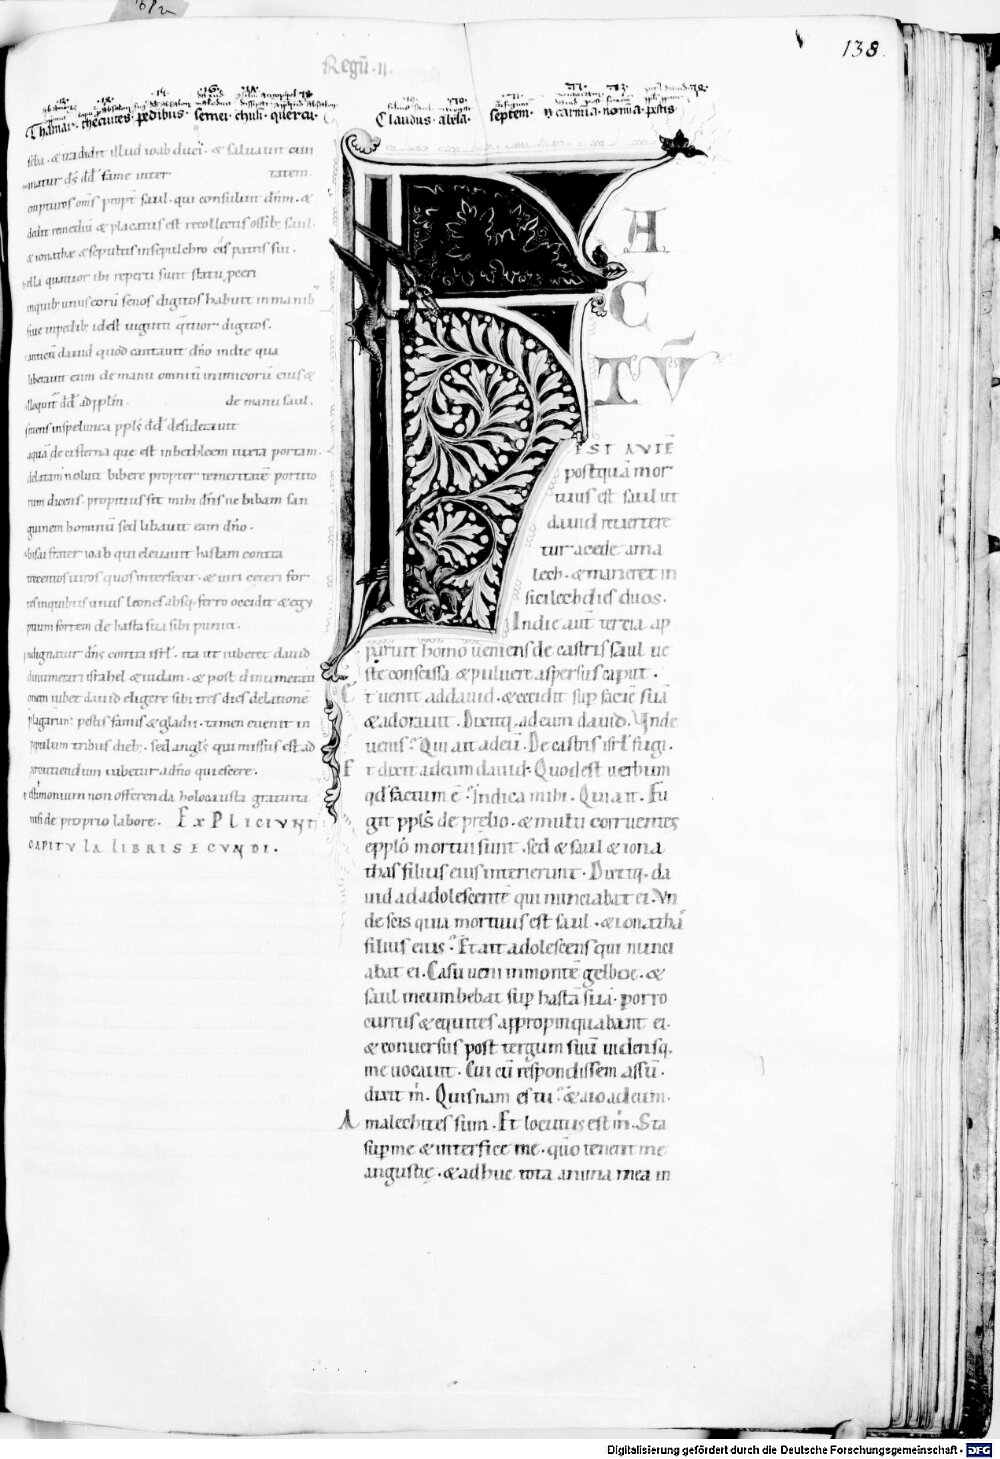 138.
Regū. II.
Thamar. thecuites. pedibus. semei. chusi. quercu. Claudus. abela. septem. carmina. nomia. pestis
seba. & tradidit illud ioab duci. & saluauit eum
dn̄s dd̄ fame inter tatem.
empturos om̄s propt̄ saul. qui consuluit dn̄m. &
dedit remediū & placatus est recollectis ossib; saul.
& ionathæ & sepultis in sepulchro cis patris sui.
bella quatuor ibi reperti sunt statu peeri
inquib; unus eorū senos digitos habuit in manib
siue in pedib; id est uiginti quatuor digitos.
canticū dauid quod cantauit dn̄o in die qua
liberauit eum de manu omniū inimicorū eius &
alloquit̄ dd̄ ad pplm̄. de manu saul.
sitiens in spelunca ppls dd̄ desiderauit
aquā de cisterna que est in bethleem iuxta portam.
delatam noluit bibere propter temeritatē portito
rum dicens. propitius sit mihi dn̄s ne bibam san
guinem hominū sed libauit eam dn̄o.
abisai frater ioab qui eleuauit hastam contra
trecentos uiros quos interfecit. & uiri ceteri for
tes in quibus unus leones absq; ferro occidit & egy
ptium fortem de hasta sua sibi punit.
indignatur dn̄s contra isrl̄. ita ut iuberet dauid
dinumerari israhel & iudam. & post dinumerati
onem iubet dauid eligere sibi tres dies delatione
plagarum pestis famis & gladii. tamen euenit in
populum tribus dieb; sed angls̄ qui missus est ad
percutiendum iubetur a dn̄o quiescere.
testimonium non offerenda holocausta gratuita
nisi de proprio labore. EXPLICIUNT
CAPITULA LIBRI SECUNDI.
FACTŪ
EST AUTĒ
postquā mor
tuus est saul ut
dauid reuertere
tur a cede ama
lech. & maneret in
sicilech dies duos.
In die aut̄ tercia ap
paruit homo ueniens de castris saul ue
ste conscissa & puluere aspersus caput.
Et uenit ad dauid. & cecidit sup faciē suā
& adorauit. Dixitq; ad eum dauid. Unde
uenis? Qui ait ad eū. De castris isrl̄ fugi.
Et dixit ad eum dauid. Quod est uerbum
qd̄ factum ē? Indica mihi. Qui ait. Fu
git ppls̄ de prelio. & multi corruentes
e pplo mortui sunt. sed & saul & iona
thas filius eius interierunt. Dixitq; da
uid ad adolescentē qui nunciabat ei. Un
de scis quia mortuus est saul. & ionathā
filius eius? Et ait adolescens qui nunci
abat ei. Casu ueni in montē gelboe. &
saul incumbebat sup hastā suā. porro
currus & equites appropinquabant ei.
& conuersus post tergum suū uidensq;
me uocauit. Cui cū respondissem assū.
dixit m̄. Quisnam es tu? & aio ad eum.
Amalechites sum. Et locutus est m̄. Sta
sup me & interfice me. quō tenent me
angustię. & adhuc tota anima mea in
Digitalisierung gefördert durch die Deutsche Forschungsgemeinschaft - DFG